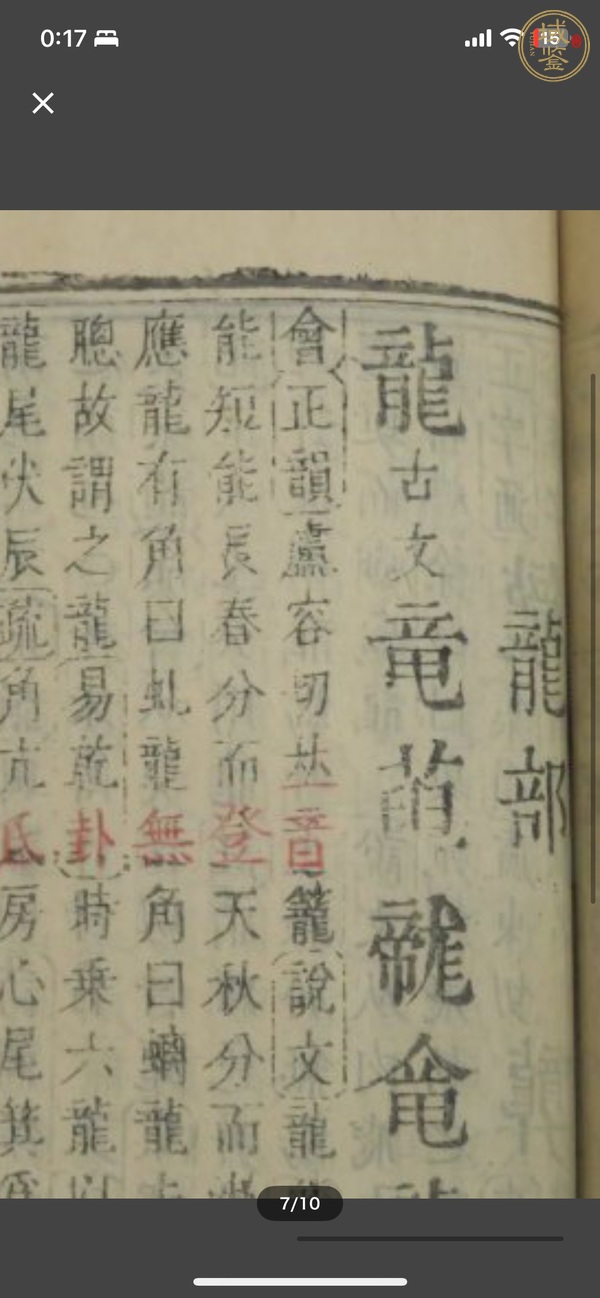 0:17
15
龍部
龍古文竜𦱉龍竜
會正韻盧容切𠀤音籠說文龍
能短能長春分而登天秋分而
應龍有角曰虬龍無角曰螭龍
聰故謂之龍易乾卦時乘六龍以
龍尾伏辰疏角亢氐房心尾箕
7/10